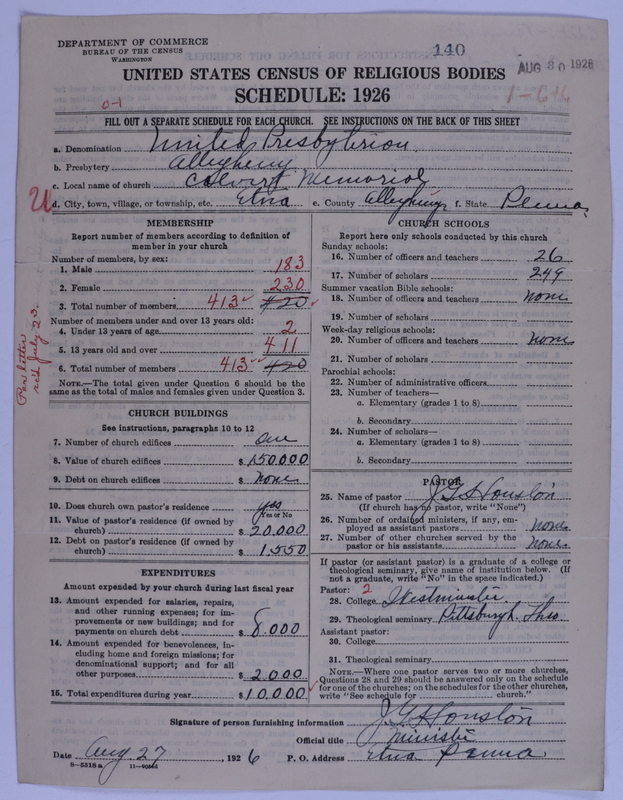 DEPARTMENT OF COMMERCE
BUREAU OF THE CENSUS
WASHINGTON
140
AUG 30 1926
UNITED STATES CENSUS OF RELIGIOUS BODIES
SCHEDULE: 1926
0-1
FILL OUT A SEPARATE SCHEDULE FOR EACH CHURCH. SEE INSTRUCTIONS ON THE BACK OF THIS SHEET
a. Denomination United Presbyterian
b. Presbytery Allegheny
c. Local name of church Calvert Memorial
d. City, town, village, or township, etc. Etna e. County Allegheny f. State Penna
U
MEMBERSHIP
Report number of members according to definition of
member in your church
Number of members, by sex:
1. Male 183
2. Female 230
3. Total number of members 413 420
Number of members under and over 13 years old:
4. Under 13 years of age 2
5. 13 years old and over 411
6. Total number of members 413 420
NOTE.—The total given under Question 6 should be the
same as the total of males and females given under Question 3.
Per letter
July 23
CHURCH BUILDINGS
See instructions, paragraphs 10 to 12
7. Number of church edifices one
8. Value of church edifices $150.000
9. Debt on church edifices $ none
10. Does church own pastor's residence yes
Yes or No
11. Value of pastor's residence (if owned by
church) $ 20.000
12. Debt on pastor's residence (if owned by
church) $ 1550
EXPENDITURES
Amount expended by your church during last fiscal year
13. Amount expended for salaries, repairs,
and other running expenses; for im-
provements or new buildings; and for
payments on church debt $ 8.000
14. Amount expended for benevolences, in-
cluding home and foreign missions; for
denominational support; and for all
other purposes $ 2000
15. Total expenditures during year $10.000
CHURCH SCHOOLS
Report here only schools conducted by this church
Sunday schools:
16. Number of officers and teachers 26
17. Number of scholars 249
Summer vacation Bible schools:
18. Number of officers and teachers none
19. Number of scholars
Week-day religious schools:
20. Number of officers and teachers none
21. Number of scholars
Parochial schools:
22. Number of administrative officers
23. Number of teachers—
a. Elementary (grades 1 to 8)
b. Secondary
24. Number of scholars—
a. Elementary (grades 1 to 8)
b. Secondary
PASTOR
25. Name of pastor J G Houston
(If church has no pastor, write "None")
26. Number of ordained ministers, if any, em-
ployed as assistant pastors none
27. Number of other churches served by the
pastor or his assistants none
If pastor (or assistant pastor) is a graduate of a college or
theological seminary, give name of institution below. (If
not a graduate, write "No" in the space indicated.)
Pastor: 2
28. College Westminster
29. Theological seminary Pittsburgh Theo
Assistant pastor:
30. College
31. Theological seminary
NOTE.—Where one pastor serves two or more churches,
Questions 28 and 29 should be answered only on the schedule
for one of the churches; on the schedules for the other churches,
write "See schedule for church."
Signature of person furnishing information J G Houston
Official title Minister
Date Aug 27, 1926 P. O. Address Etna Penna
8-5518a